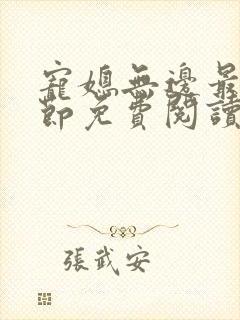 寵媳無邊最
節免費閱讀
張武安